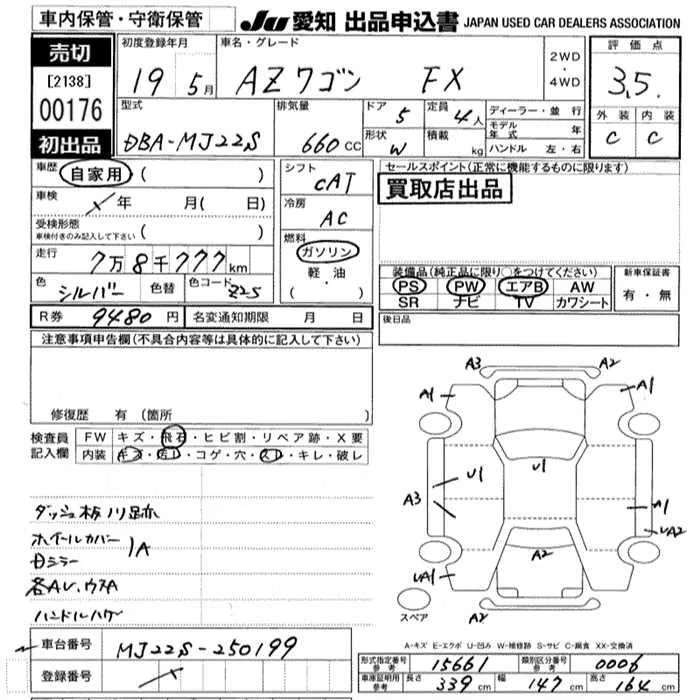 車内保管・守衛保管
JU 愛知 出品申込書 JAPAN USED CAR DEALERS ASSOCIATION
売切
[2138]
00176
初出品
初度登録年月
19 5月
車名・グレード
AZワゴン FX
2WD
・
4WD
評価点
3.5
外装 内装
C C
型式
DBA-MJ22S
排気量
660cc
ドア 5
定員 4人
形状 W
積載 kg
ディーラー・並行
モデル年式 年
ハンドル 左・右
車歴 自家用( )
車検 年 月( 日)
受検形態
車検付きのみ記入して下さい ( )
走行
7万8千777km
色 シルバー 色替 色コード Z2S
シフト
CAT
冷房
AC
燃料
ガソリン
軽・油
( )
セールスポイント(正常に機能するものに限ります)
買取店出品
装備品(純正品に限り○をつけてください)
PS PW エアB AW
SR ナビ TV カワシート
新車保証書
有・無
R券 9480円 名変通知期限 月 日
後日品
注意事項申告欄(不具合内容等は具体的に記入して下さい)
修復歴 有(箇所 )
検査員記入欄
FW キズ・飛石・ヒビ割・リペア跡・X要
内装 キズ・汚レ・コゲ・穴・スレ・キレ・破レ
ダッシュ板ノリ跡
ホイールカバー
ミラー
1A
各AU、ウスA
ハンドルハゲ
A3 A2
A1 A1
U1 U1
A3 A1
UA2
A2
UA1
A2
スペア
A-キズ E-エクボ U-凹み W-補修跡 S-サビ C-腐食 XX-交換済
車台番号 MJ22S-250199
登録番号
形式指定番号参考 15661 類別区分番号参考 0006
車庫証明用参考 長さ 339cm 幅 147cm 高さ 164cm